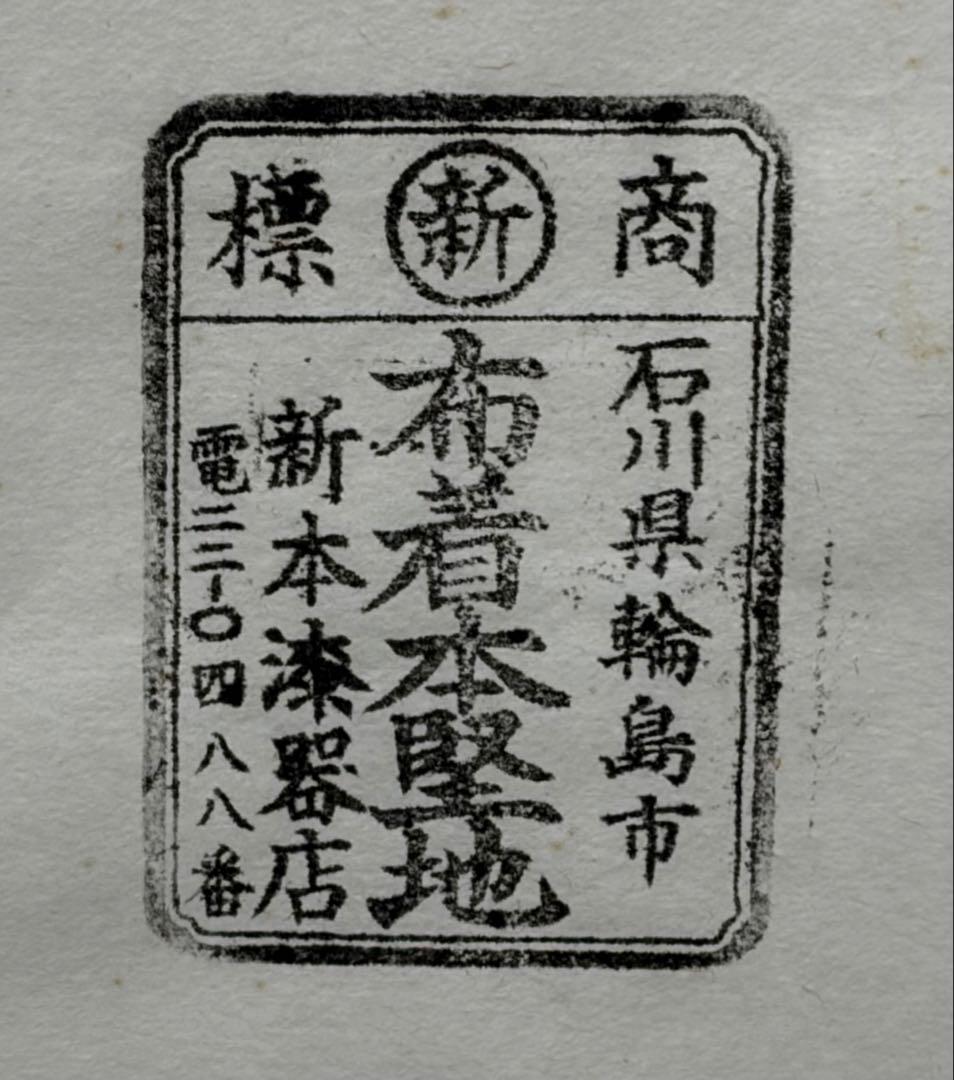 商㊟標
石川県輪島市
布着本堅地
新本漆器店
電二二-〇四八八番